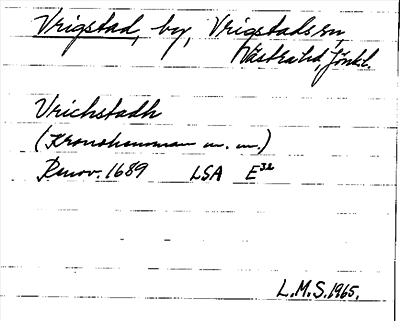 Vrigstad, by, Vrigstads sn,
Västra hd, Jönkl.
Vrichstadh
(Kronohemman m. m.)
Renov. 1689 LSA E32
L.M.S. 1965.